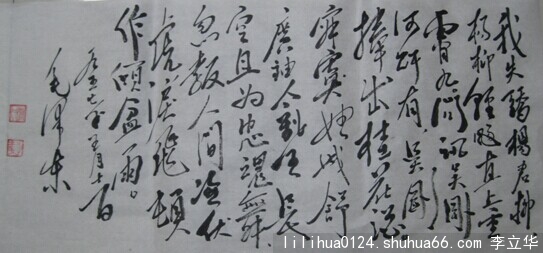 我失驕楊君失柳
楊柳輕颺直上重
霄九问讯吴刚
何所有吴刚
捧出桂花酒
寂寞嫦娥舒
廣袖万里长
空且为忠魂舞
忽報人间曾伏
虎淚飛頓
作傾盆雨。
一九五七年五月十一日
毛澤東
lilihua0124.shuhua66.com 李立华